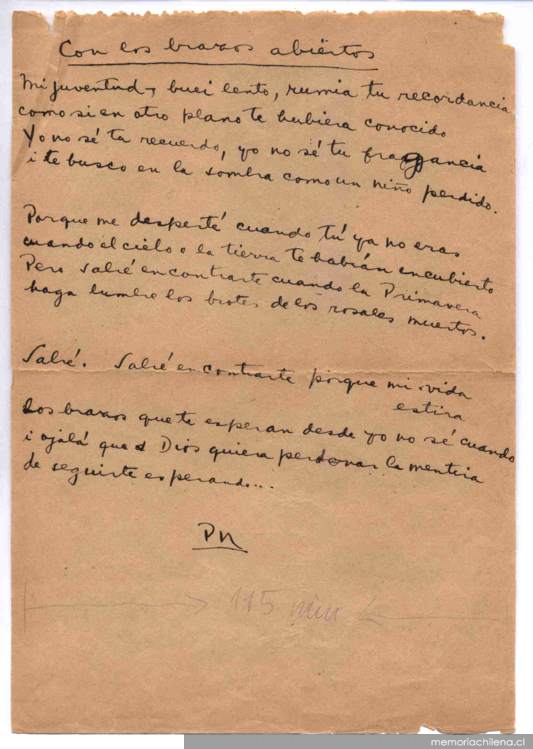 Con los brazos abiertos
Mi juventud, buei lento, rumia tu recordancia
como si en otro plano te hubiera conocido
Yo no sé tu recuerdo, yo no sé tu fragancia
i te busco en la sombra como un niño perdido.
Porque me desperté cuando tú ya no eras
cuando el cielo o la tierra te habían encubierto
Pero sabré encontrarte cuando la Primavera
haga lumbre los brotes de los rosales muertos.
Sabré. Sabré encontrarte porque mi vida
estira
Los brazos que te esperan desde yo no sé cuando
i ojalá que Dios quiera perdonar la mentira
de seguirte esperando...
PN
115 mm
memoriachilena.cl